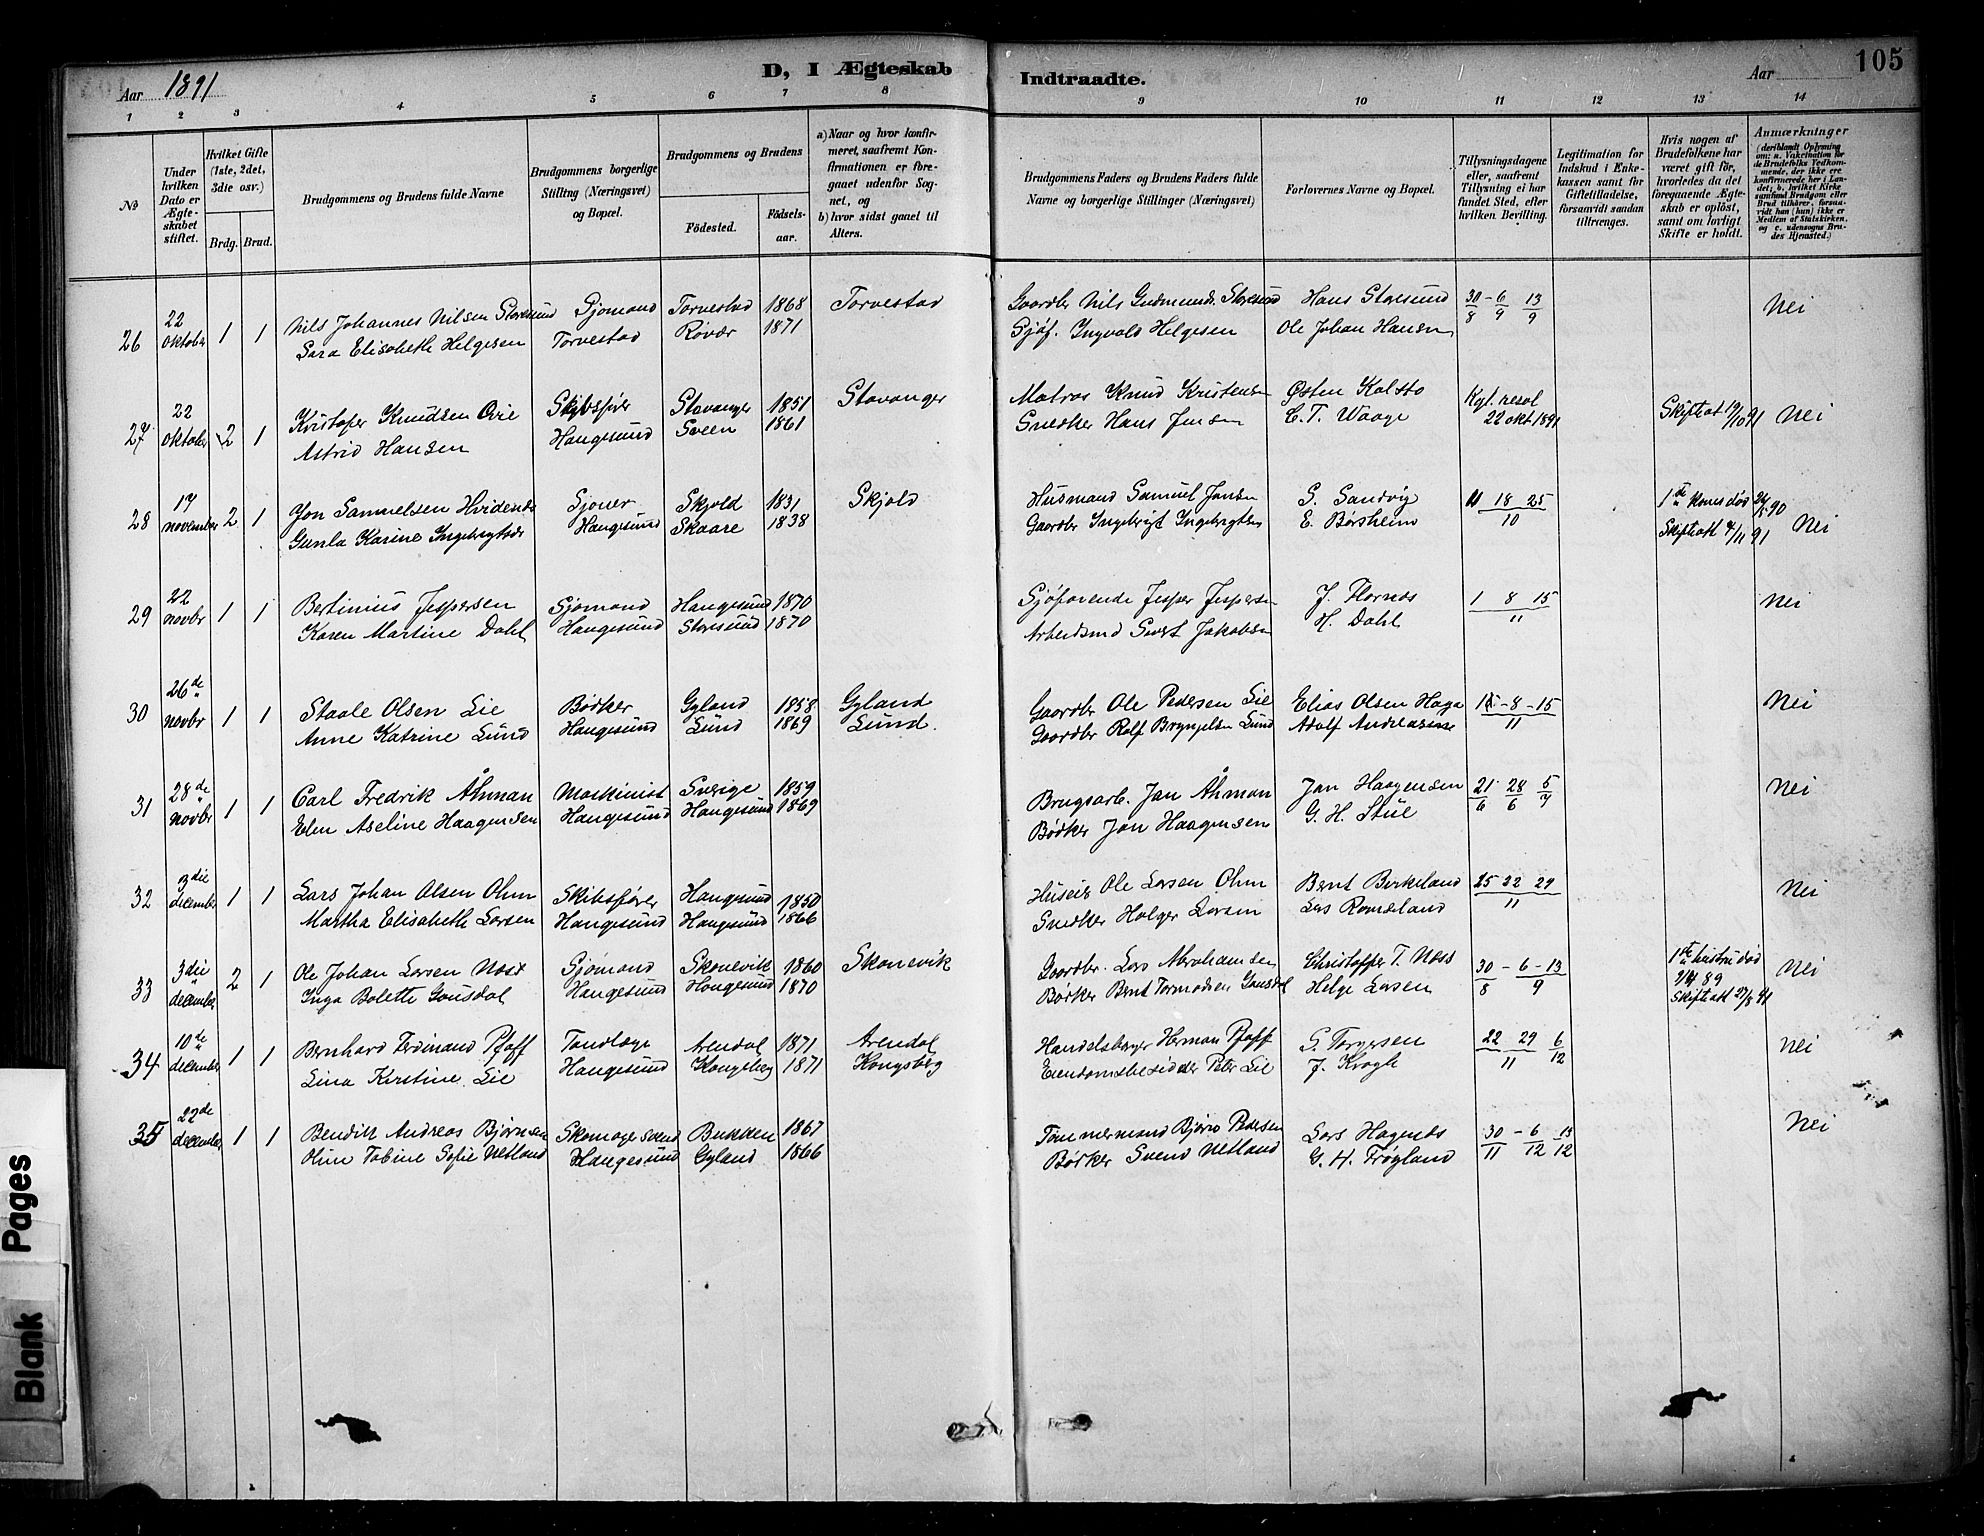 Aar 1891
D, I Ægteskab
Indtraadte.
Aar
105
1 2 3 4 5 6 7 8 9 10 11 12 13 14
No
Under hvilken Dato er Ægteskabet stiftet.
Hvilket Gifte (1ste, 2det, 3die osv.)
Brdg. Brud.
Brudgommens og Brudens fulde Navne
Brudgommens borgerlige Stilling (Næringsvei) og Bopæl.
Brudgommens og Brudens
Födested.
Födsels-aar.
a) Naar og hvor konfirmeret, saafremt Konfirmationen er foregaaet udenfor Sognet, og
b) hvor sidst gaaet til Alters.
Brudgommens Faders og Brudens Faders fulde Navne og borgerlige Stillinger (Næringsvei)
Forlovernes Navne og Bopæl.
Tillysningsdagene eller, saafremt Tillysning ei har fundet Sted, efter hvilken Bevilling.
Legitimation for Indskud i Enkekassen samt for Giftetilladelse, forsaavidt saadan tiltrænges.
Hvis nogen af Brudefolkene har været gift för, hvorledes da det foregaaende Ægteskab er oplöst, samt om lovligt Skifte er holdt.
Anmærkninger
(deriblandt Oplysning om: a. Vakcination for de Brudefolks Vedkommende, der ikke ere konfirmerede her i Landet; b. hvilket Kirkesamfund Brudgom eller Brud tilhörer, forsaavidt han (hun) ikke er Medlem af Statskirken, og c. udensogns Brudes Hjemsted.)
26 22 oktober 1 1 Nils Johannes Nilsen Storesund Sjømand Torvestad 1868 Torvestad Gaardbr Nils Gudmunds. Storesund Hans Storesund 30/8 - 6/9 13/9 Nei
Sara Elisabeth Helgesen Torvestad Røvær 1871 Sjøf. Ingvald Helgesen Ole Johan Hansen
27 22 oktober 2 1 Kristofer Knudsen Skibsfører Stavanger 1851 Stavanger Matros Knud Kristensen Østen Kolsto Kgl. resol 22 okt 1891 Skifteatt 19/10 91 Nei
Astrid Hansen Haugesund Sveen 1861 Snedker Hans Jensen C. T. Waage
28 17 november 2 1 Jon Samuelsen Sjouer Skjold 1831 Skjold Husmand Samuel Jonsen S. Sandvig 11 18 25 / 10 1ste kones død 90 Skifteatt 4/11 91 Nei
Gunla Karine Ingebrigtsdr Haugesund Skaare 1838 Gaardbr Ingebrigt Ingebrigtsen E. Børsheim
29 22 novbr 1 1 Bertinius Jespersen Sjømand Haugesund 1870 Sjøfarende Jesper Jespersen J. Flornes 1 8 15 / 11 Nei
Karen Martine Dahl Haugesund Storesund 1870 Arbeidsmd Sivert Jakobsen H. Dahl
30 26de novbr 1 1 Staale Olsen Lie Bødker Gyland 1858 Gyland Gaardbr Ole Pedersen Lie Elias Olsen Haga 1 - 8 - 15 / 11 Nei
Anne Katrine Lund Haugesund Lund 1869 Lund. Gaardbr Rolf Bryngelsen Lund Adolf Andreassen
31 28de novbr 1 1 Carl Fredrik Åhman Maskinist Sverige 1859 Brugsarb. Jan Åhman Jan Haagensen 21/6 28/6 5/7 Nei
Elen Aseline Haagensen Haugesund Haugesund 1869 Bødker Jan Haagensen G. H. Stüe
32 3die december 1 1 Lars Johan Olsen Ohm Skibsfører Haugesund 1850 Huseier Ole Larsen Ohm Bernt Birkeland 25 22 29 / 11 Nei
Martha Elisabeth Larsen Haugesund Haugesund 1866 Snedker Holger Larsen Lars Romsland
33 3die december 2 1 Ole Johan Larsen Næss Sjømand Skonevik 1860 Skonevik Gaardbr. Lars Abrahamsen Christoffer T. Næss 30/8 - 6 - 13 / 9 1ste hustru død 89 Skifteatt 27/8 91 Nei
Inga Bolette Gausdal Haugesund Haugesund 1870 Bødker Bernt Tormodsen Gausdal Helge Larsen
34 10de december 1 1 Bernhard Ferdinand Pfaff Tandlæge Arendal 1871 Arendal Handelsborger Herman Pfaff S. Torgersen 22 29 / 11 6/12 Nei
Lina Kirstine Lie Haugesund Kongsberg 1871 Kongsberg Eiendomsbesidder Peter Lie J. Krogh
35 22de december 1 1 Bendik Andreas Bjørnsen Skomagersvend Bukken 1867 Tømmermand Bjørn Pedersen Lars Hagenæs 30/11 - 6/12 13/12 Nei
Oline Tobine Sofie Netland Haugesund Gyland 1866 Bødker Svend Netland G. H. Frøyland
Blank Pages